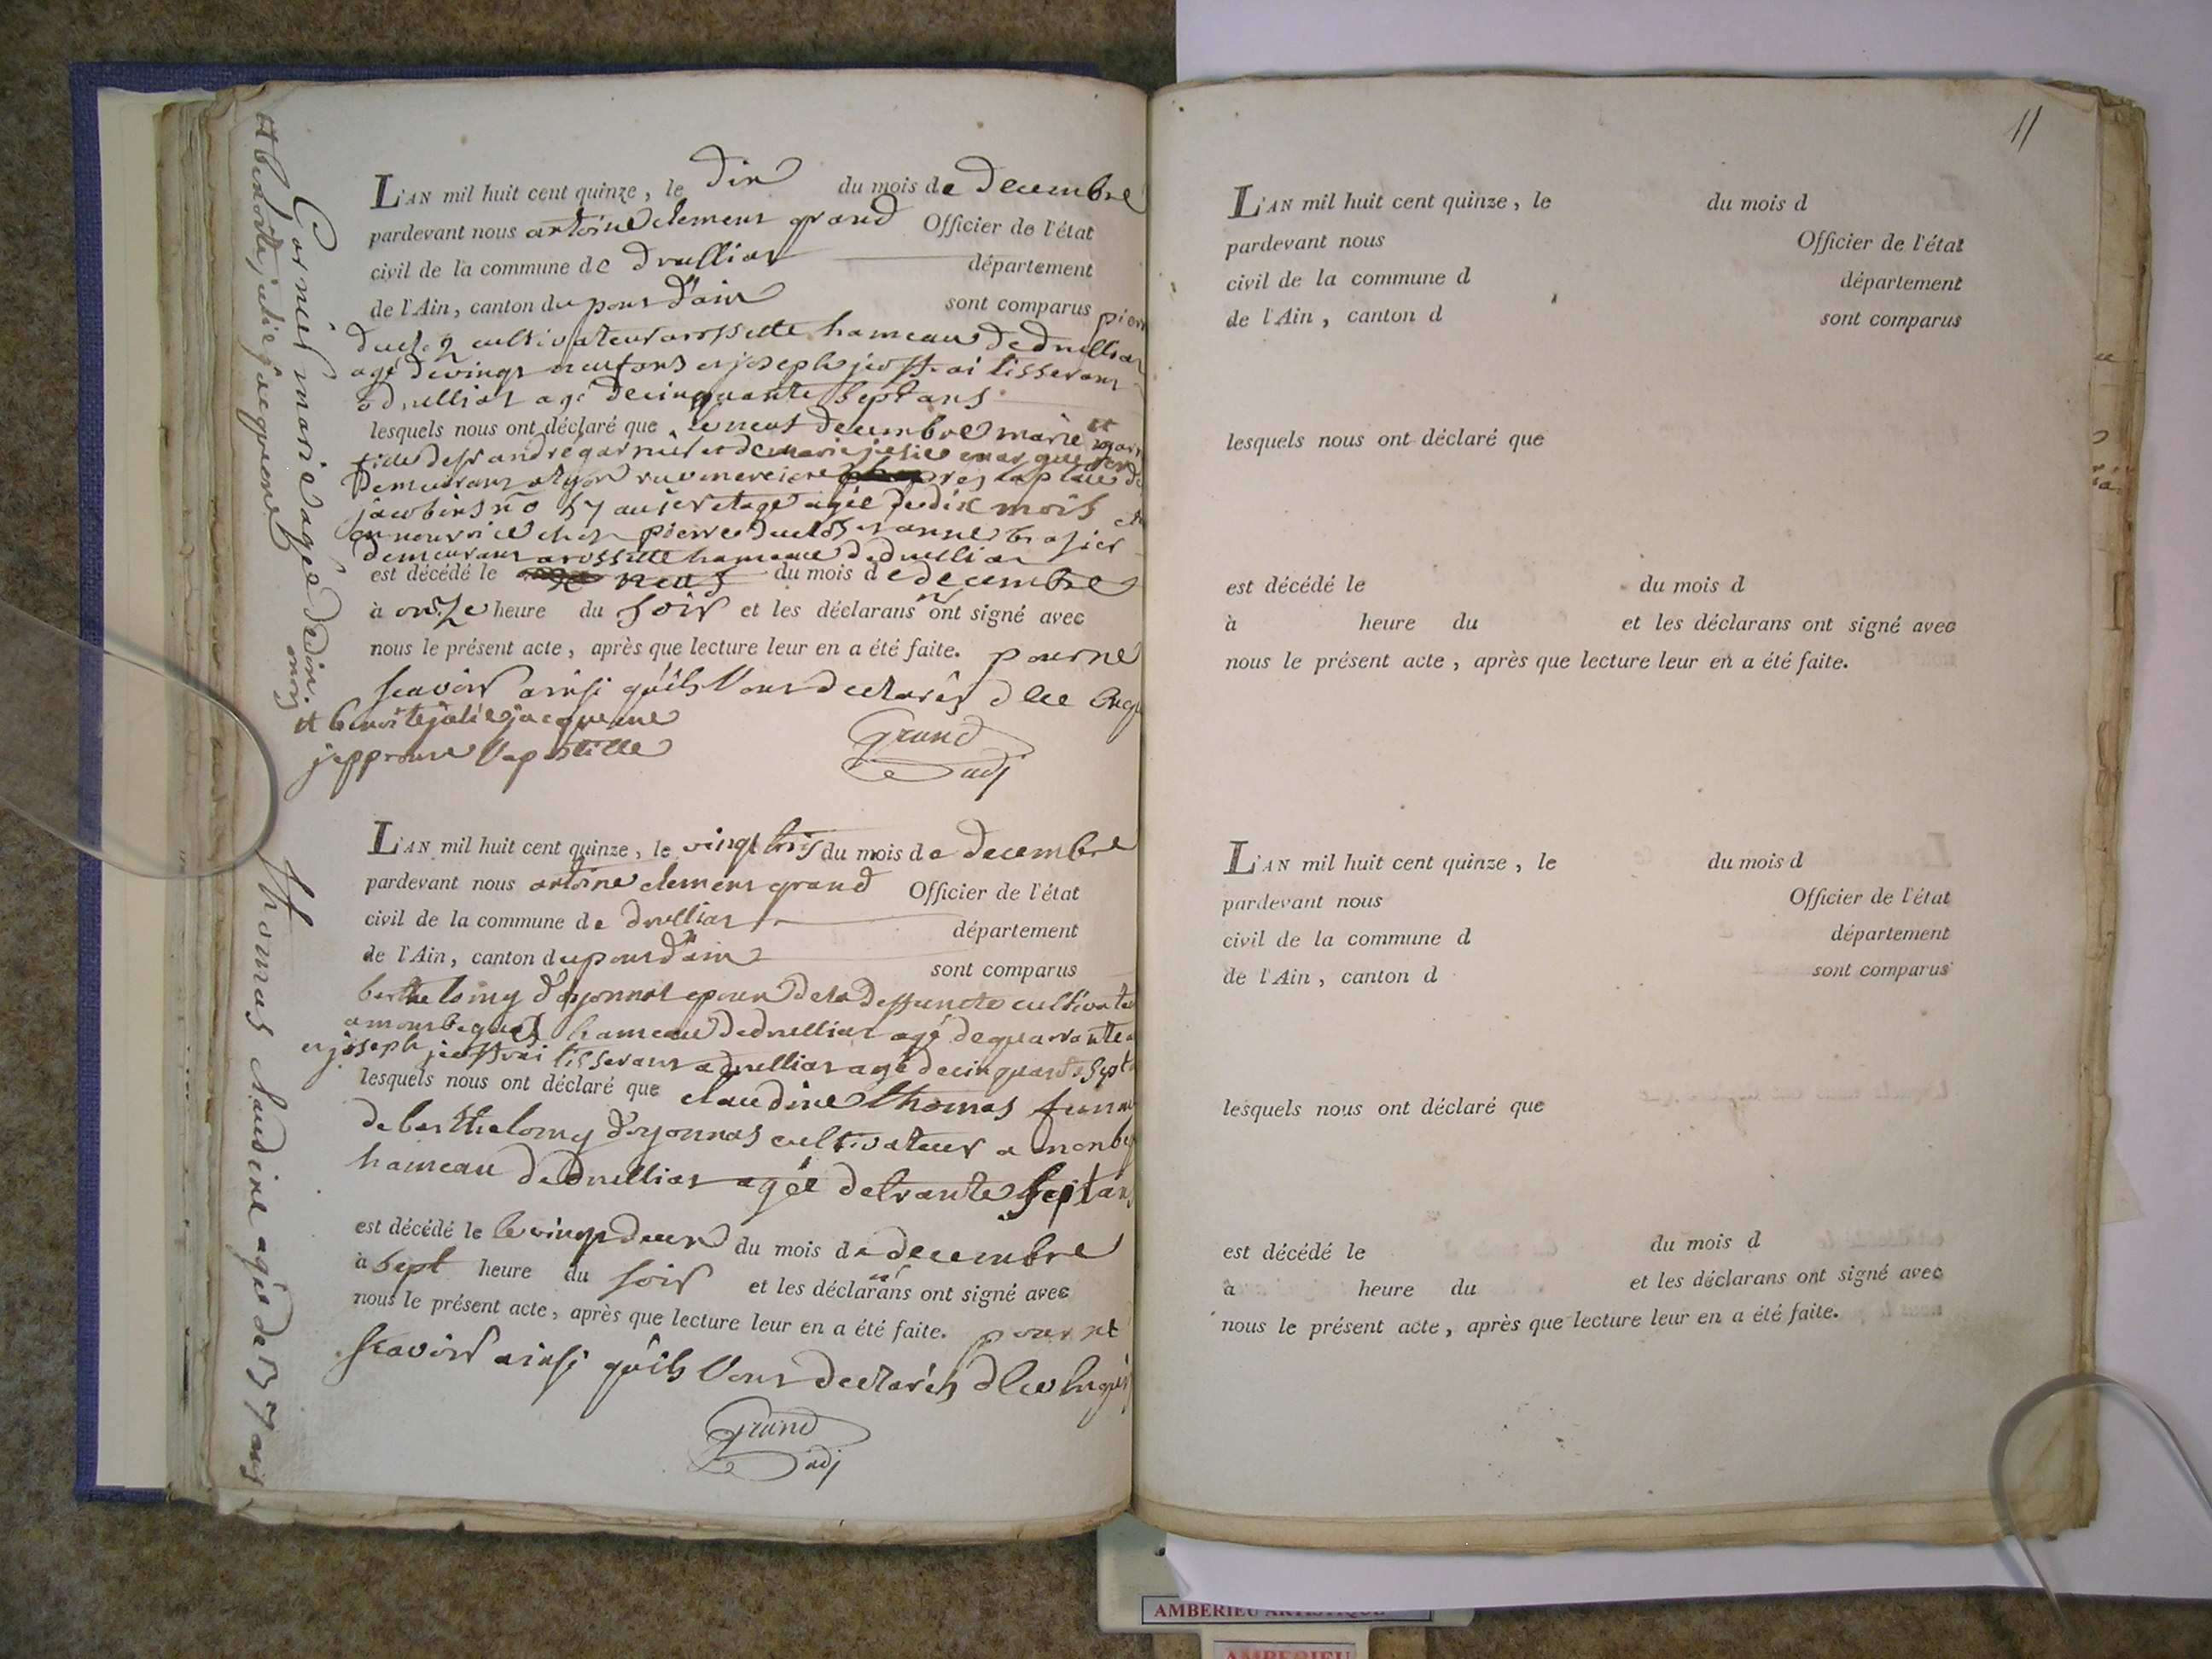 Garnier marie agée de dix mois
# benoite julie jacqueme
L'AN mil huit cent quinze, le dix du mois de decembre
pardevant nous antoine clement grand Officier de l'état
civil de la commune de druilliat département
de l'Ain, canton du pont d'ain sont comparus
duclos cultivateur a rossette hameau de druillia
agé de vingt neuf ans et joseph tisserant
a druilliat agé de cinquante sept ans
lesquels nous ont déclaré que le neuf decembre marie #
fille de sr andré garnier et de marie
demeurant a lyon rue merciere pres la place de
jacobins no 57 au 1er etage agée de dix mois
en nourrice chez pierre duclos et anne
demeurant a rossette hameau de druilliat
est décédé le neuf du mois de decembre
à onze heure du soir et les déclarans n'ont signé avec
nous le présent acte, après que lecture leur en a été faite. pour ne
scavoir ainsi qu'ils l'ont declarés d'ce
# benoite julie jacqueme
japprouve l'apostille
Grand
adj
thomas claudine agée de 37 ans
L'AN mil huit cent quinze, le vingt trois du mois de decembre
pardevant nous antoine clement grand Officier de l'état
civil de la commune de druilliat département
de l'Ain, canton du pont d'ain sont comparus
berthelomy d'oyonnat epoux de la deffuncte cultivate
hameau de druilliat agé de quarante
et joseph tisserant a druilliat agé de cinquante sept
lesquels nous ont déclaré que claudine thomas femm
de berthelomy d'oyonnas cultivateur a
hameau de druilliat agée de trante sept ans
est décédé le le vingt deux du mois de decembre
à sept heure du soir et les déclarans n'ont signé avec
nous le présent acte, après que lecture leur en a été faite. pour ne
scavoir ainsi qu'ils l'ont declarés d'ce
Grand
adj
11
L'AN mil huit cent quinze, le du mois d
pardevant nous Officier de l'état
civil de la commune d département
de l'Ain, canton d sont comparus
lesquels nous ont déclaré que
est décédé le du mois d
à heure du et les déclarans ont signé avec
nous le présent acte, après que lecture leur en a été faite.
L'AN mil huit cent quinze, le du mois d
pardevant nous Officier de l'état
civil de la commune d département
de l'Ain, canton d sont comparus
lesquels nous ont déclaré que
est décédé le du mois d
à heure du et les déclarans ont signé avec
nous le présent acte, après que lecture leur en a été faite.
AMBERIEU ARTISTIQUE
AMBERIEU